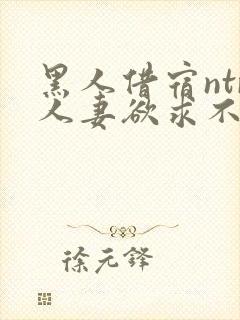 黑人借宿ntr
人妻欲求不
徐元锋